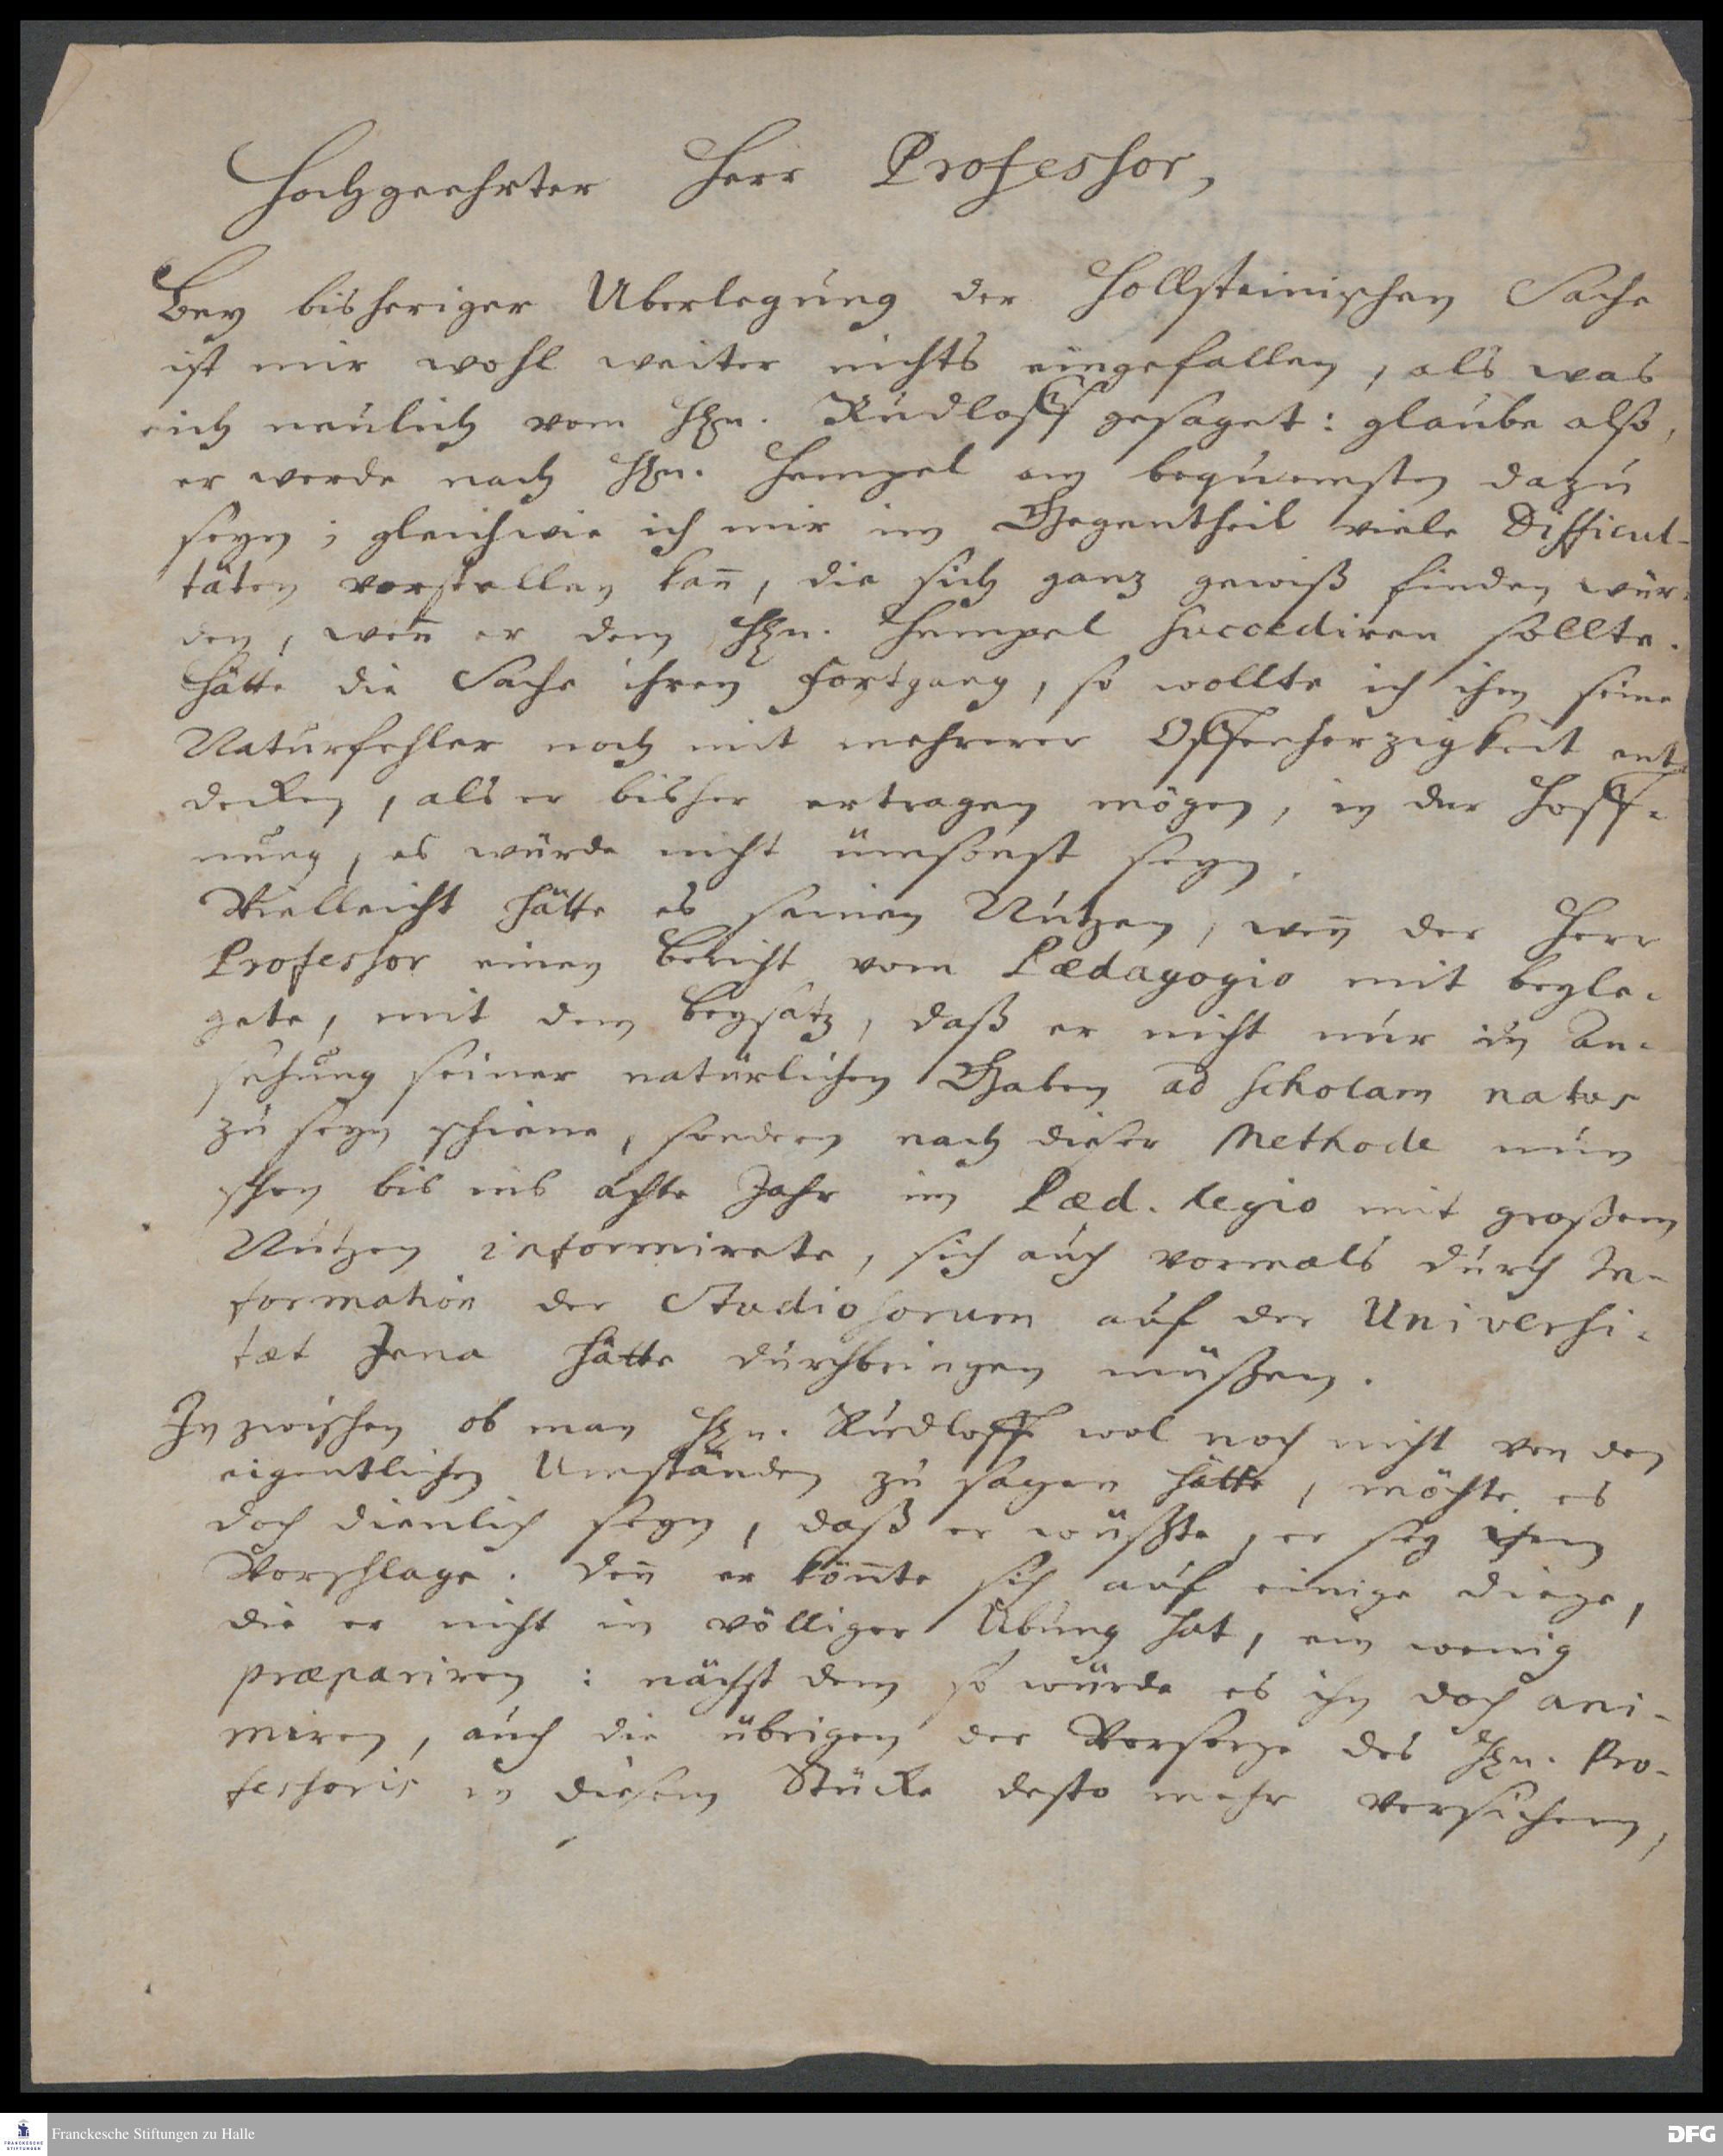 5
Hochgeehrter Herr Professor,
Bey bisheriger Uberlegung der Hollsteinischen Sache
ist mir wohl weiter nichts eingefallen, als was
ich neulich vom Hn. Rudloff gesaget: glaube also,
er werde nach Hn. Hempel am bequemsten dazu
seyn; gleichwie ich mir im Gegentheil viele Difficul-
täten vorstellen kan̄, die sich ganz gewiß finden wür-
den, wen̄ er dem Hn. Hempel succediren sollte.
Hätte die Sache ihren Fortgang, so wollte ich ihm seine
Naturfehler noch mit mehrerer Offenherzigkeit ent-
decken, als er bisher ertragen mögen, in der Hoff-
nung, es würde nicht ümsonst seyn.
Vielleicht hätte es seinen Nutzen, wen̄ der Herr
Professor einen Bericht vom Pædagogio mit beyle-
gete, mit dem Beysatz, daß er nicht nur in An-
sehung seiner natürlichen Gaben ad scholam natus
zu seyn schiene, sondern nach dieser Methode nun
schon bis ins achte Jahr im Pæd. Regio mit großem
Nutzen informirete, sich auch vormals durch In-
formation der Studiosorum auf der Universi-
tæt Jena hätte durchbringen müßen.
Inzwischen ob man Hn. Rudloff wol noch nicht von den
eigentlichen Umständen zu sagen hätte, möchte es
doch dienlich seyn, daß er wüßte, er sey im
Vorschlage. Den̄ er kön̄te sich auf einige Dinge,
die er nicht in völliger Übung hat, ein wenig
præpariren: nächst dem so würde es ihn doch ani-
miren, auch die übrigen der Vorsorge des Hn. Pro-
fessoris in diesem Stücke desto mehr versichern,
Franckesche Stiftungen zu Halle
DFG